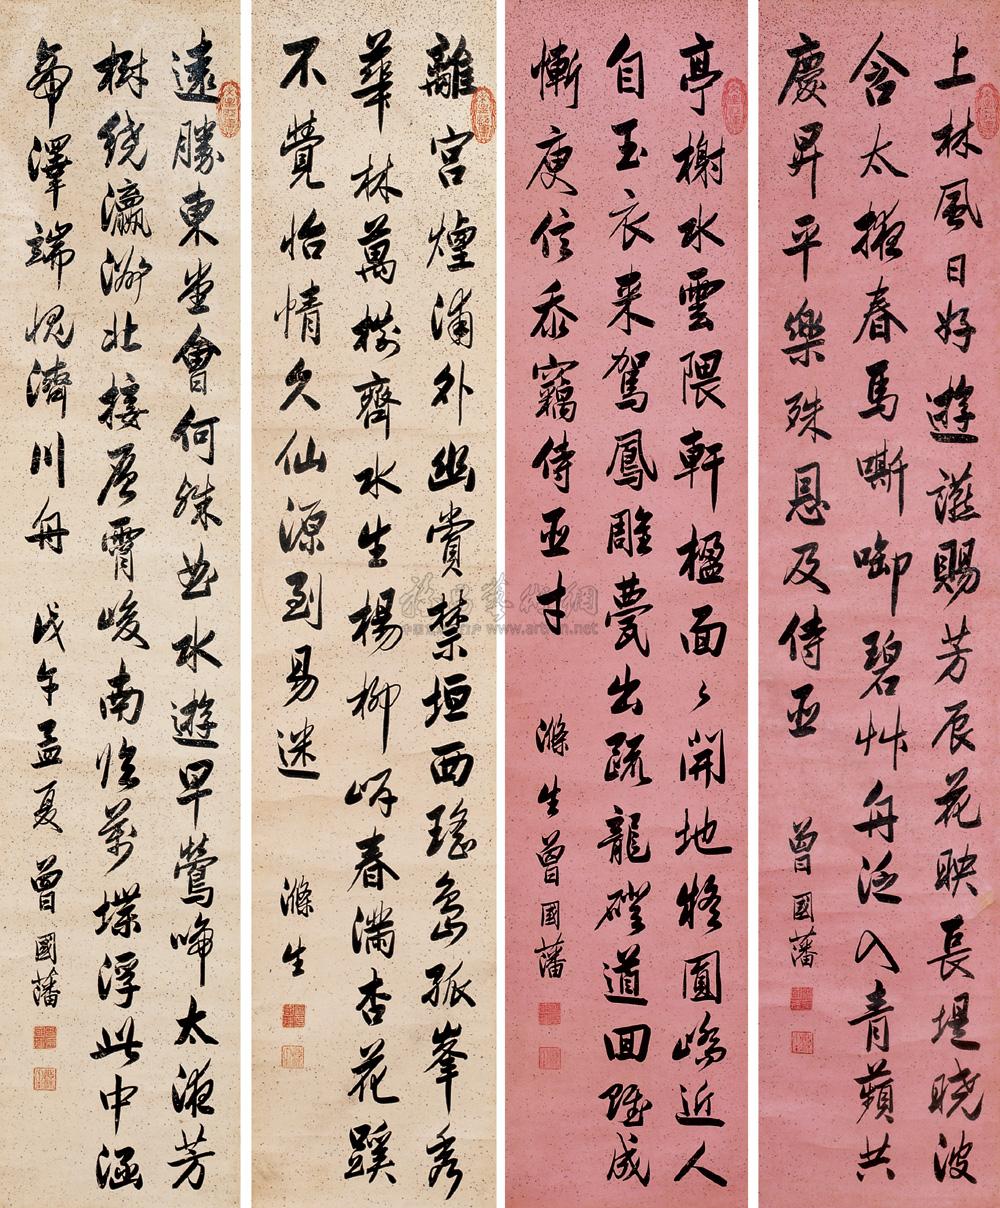 上林風日好遊讌賜芳辰花映長堤曉波
含太掖春馬嘶啣碧艸舟泛入青蘋共
慶昇平樂殊恩及侍臣 曾國藩
亭榭水雲隈軒楹面〻開地將圓嶠近人
自玉衣来駕鳳雕甍出疏龍磴道回賦成
慚庾信忝竊侍臣才 滌生曾國藩
離宮煙浦外幽賞禁垣西瑤島孤峯秀
華林萬樹齊水生楊柳岍春滿杏花蹊
不覺怡情久仙源到易迷 滌生
遠勝東堂會何殊曲水遊早鶯啼太液芳
樹繞瀛洲北接層霄峻南臨萬堞浮此中涵
帝澤端愧濟川舟 戊午孟夏曾國藩